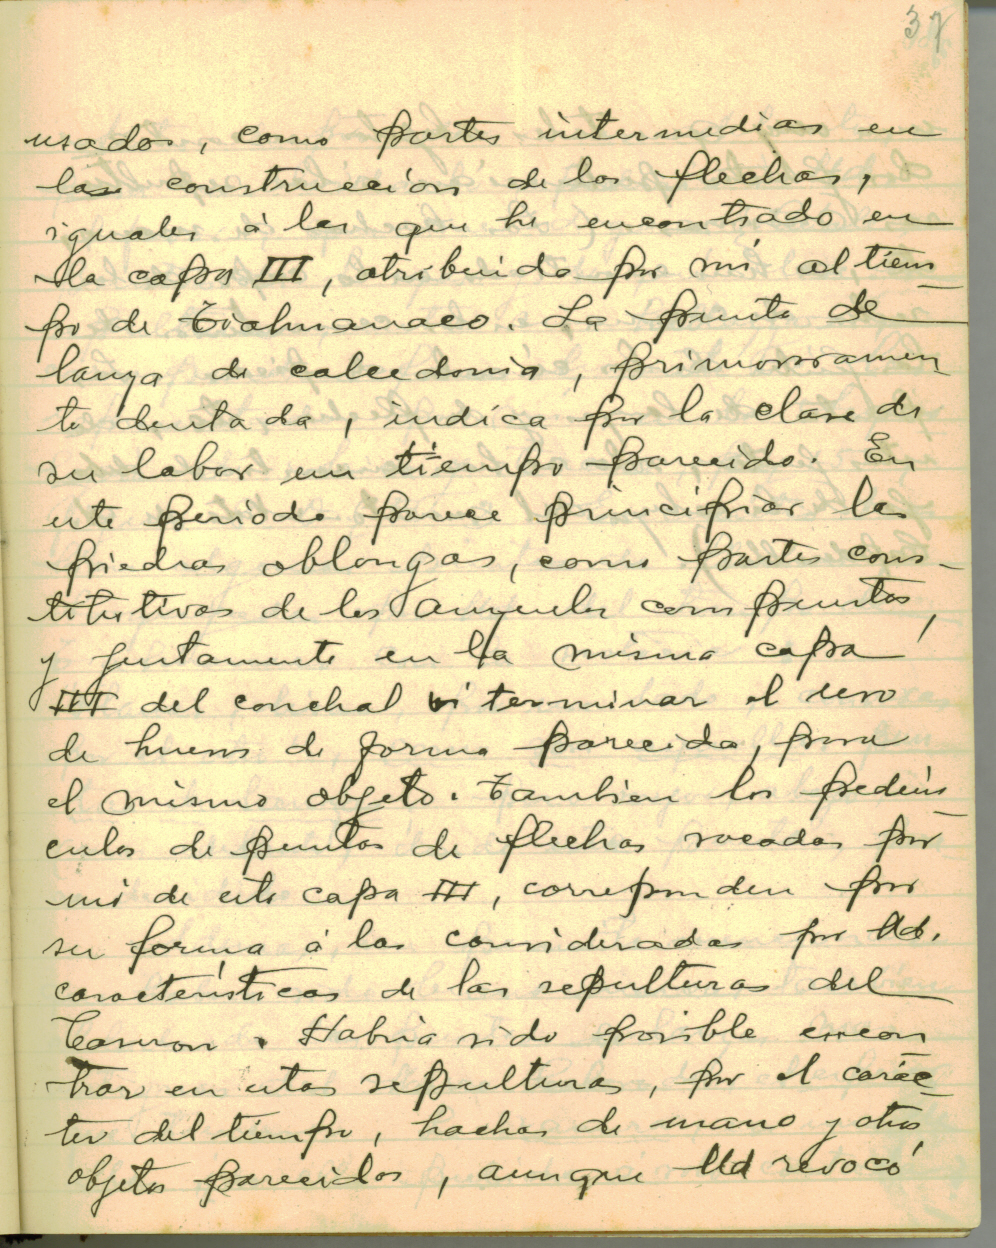 37
usados, como partes intermedias en
las construccion de los flechas,
iguales á las que he encontrado en
la capa III, atribuida por mi al tiem
po de Tiahuanaco. La punta de
lanza de calcedonia, primorosamen
te dentada, indica por la clase de
su labor un tiempo parecido. En
este periodo parece principiar las
piedras oblongas, como partes cons-
titutivas de los anzuelos compuestos,
y justamente en la misma capa
III del conchal vi terminar el uso
de huesos de forma parecida, para
el mismo objeto. Tambien los pedún
culos de puntas de flechas sacadas por
mi de esta capa III, corresponden por
su forma á los consideradas por Ud.
características de las sepulturas del
Habria sido posible encon
trar en estas sepulturas, por el carác-
ter del tiempo, hachas de mano y otros
objetos parecidos, aunque Ud revocó